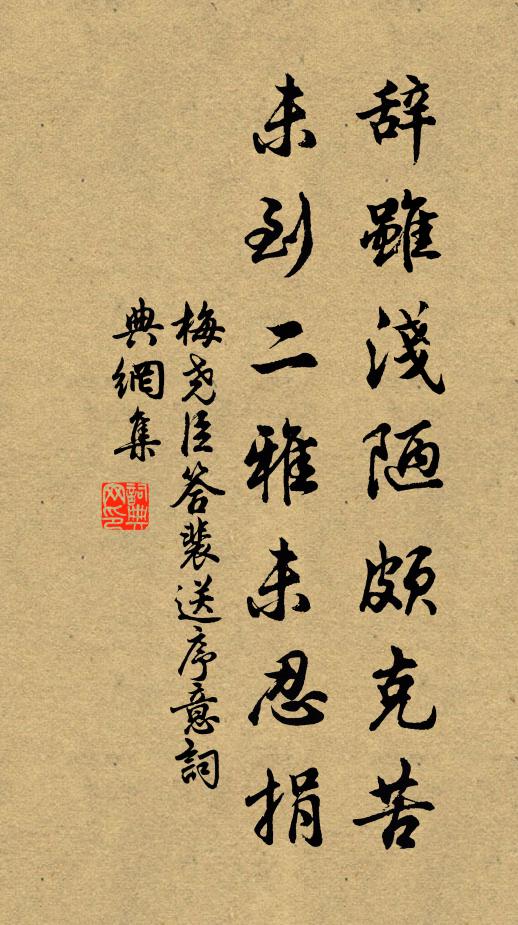 辞雖淺陋頗克苦
未到二雅未忍捐
梅尧臣答裴送序意詞
典網集
詞典网印